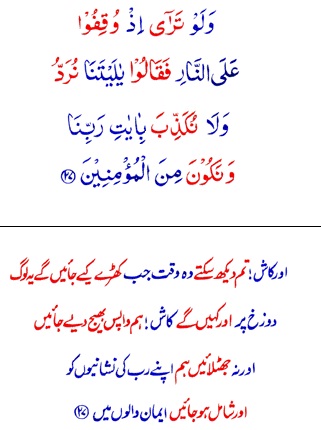 وَلَوْ تَرٰٓى اِذْ وُقِفُوْا
عَلَى النَّارِ فَقَالُوْا يٰلَيْتَنَا نُرَدُّ
وَلَا نُكَذِّبَ بِاٰيٰتِ رَبِّنَا
وَنَكُوْنَ مِنَ الْمُؤْمِنِيْنَ ﴿۲۷﴾
اور کاش! تم دیکھ سکتے وہ وقت جب کھڑے کیے جائیں گے یہ لوگ
دوزخ پر اور کہیں گے کاش! ہم واپس بھیج دیے جائیں
اور نہ جھٹلائیں ہم اپنے رب کی نشانیوں کو
اور شامل ہو جائیں ایمان والوں میں ﴿۲۷﴾